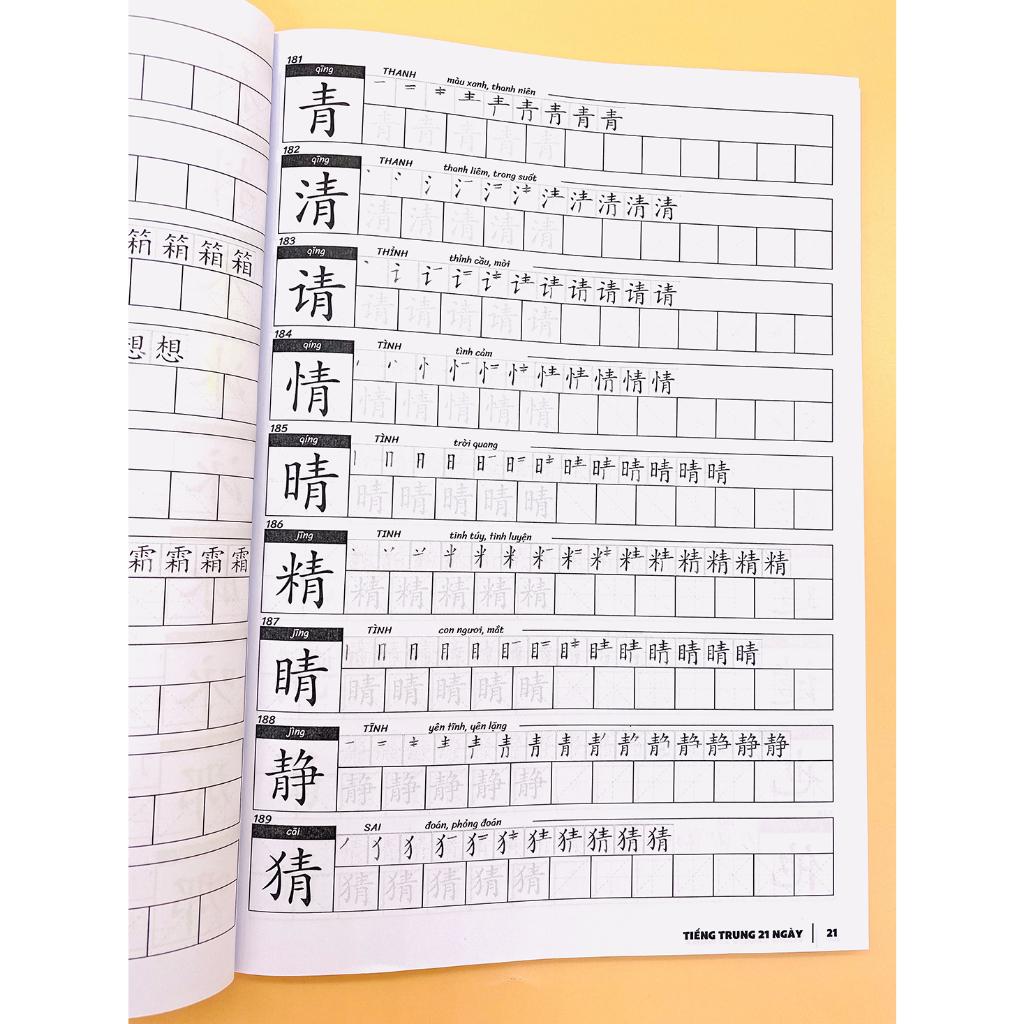 箱 箱 箱 箱
想 想
181
qīng THANH màu xanh, thanh niên
青
青
青 青 青 青 青
182
qīng THANH thanh liêm, trong suốt
清
清
清 清 清 清 清
183
qǐng THỈNH thỉnh cầu, mời
请
请
请 请 请 请 请
184
qíng TÌNH tình cảm
情
情
情 情 情 情 情
185
qíng TÌNH trời quang
晴
晴
晴 晴 晴 晴 晴
186
jīng TINH tinh túy, tinh luyện
精
精
精 精 精 精 精
187
jīng TÌNH con ngươi, mắt
睛
睛
睛 睛 睛 睛 睛
188
jìng TĨNH yên tĩnh, yên lặng
静
静
静 静 静 静 静
189
cāi SAI đoán, phỏng đoán
猜
猜
猜 猜 猜 猜 猜
TIẾNG TRUNG 21 NGÀY | 21